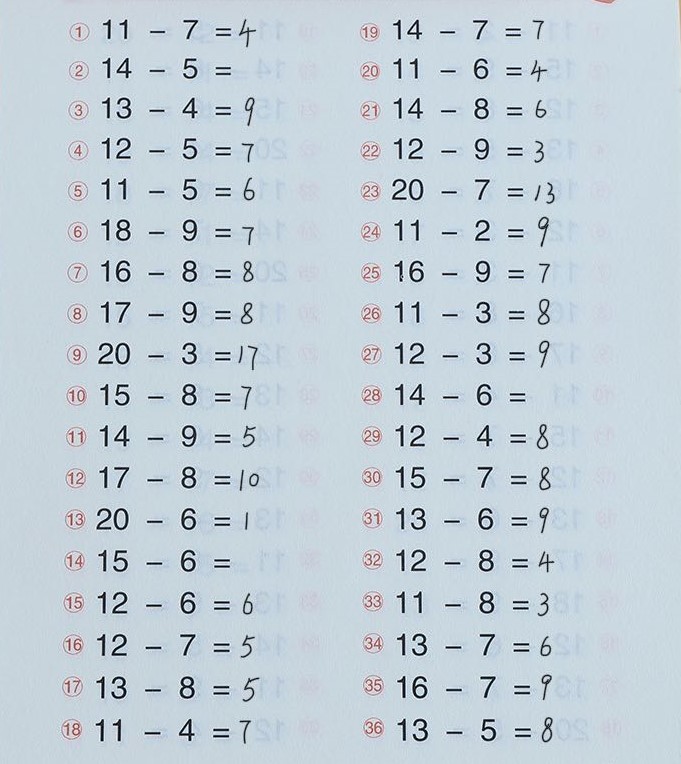 ① 11 − 7 = 4
② 14 − 5 =
③ 13 − 4 = 9
④ 12 − 5 = 7
⑤ 11 − 5 = 6
⑥ 18 − 9 = 7
⑦ 16 − 8 = 8
⑧ 17 − 9 = 8
⑨ 20 − 3 = 17
⑩ 15 − 8 = 7
⑪ 14 − 9 = 5
⑫ 17 − 8 = 10
⑬ 20 − 6 = 1
⑭ 15 − 6 =
⑮ 12 − 6 = 6
⑯ 12 − 7 = 5
⑰ 13 − 8 = 5
⑱ 11 − 4 = 7
⑲ 14 − 7 = 7
⑳ 11 − 6 = 4
㉑ 14 − 8 = 6
㉒ 12 − 9 = 3
㉓ 20 − 7 = 13
㉔ 11 − 2 = 9
㉕ 16 − 9 = 7
㉖ 11 − 3 = 8
㉗ 12 − 3 = 9
㉘ 14 − 6 =
㉙ 12 − 4 = 8
㉚ 15 − 7 = 8
㉛ 13 − 6 = 9
㉜ 12 − 8 = 4
㉝ 11 − 8 = 3
㉞ 13 − 7 = 6
㉟ 16 − 7 = 9
㊱ 13 − 5 = 8